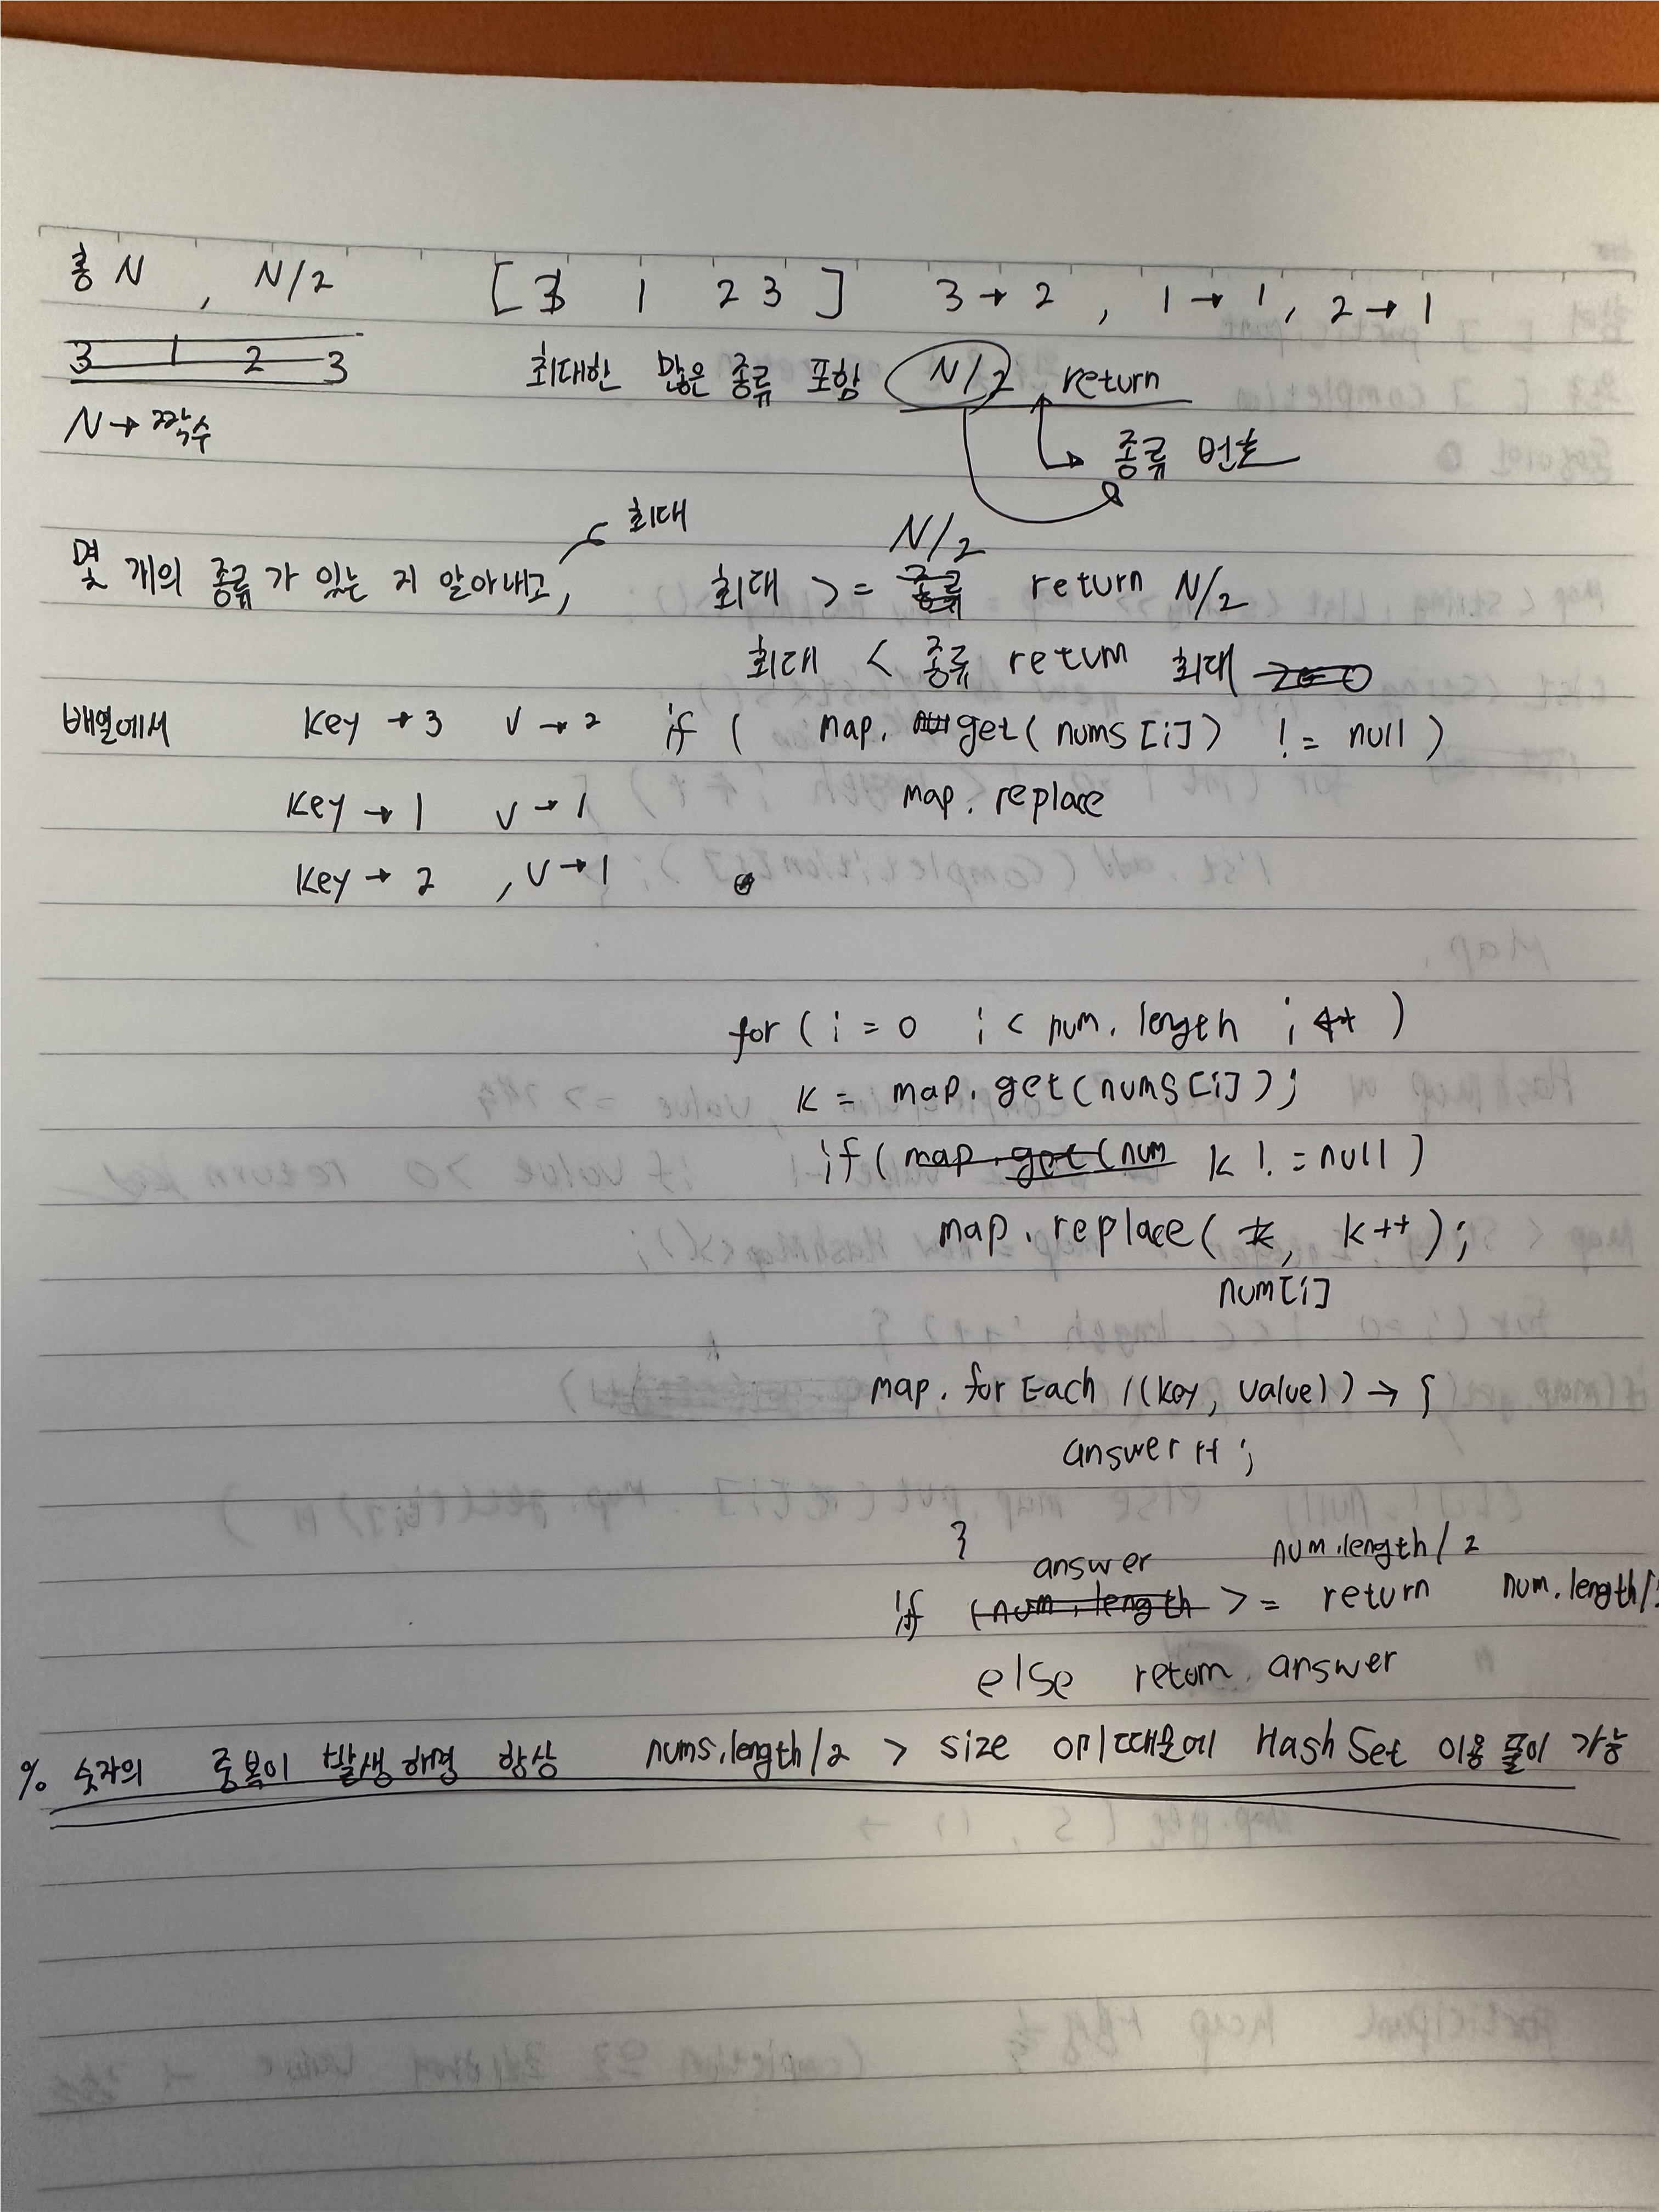 총 N , N/2 [ 3 1 2 3 ] 3 → 2 , 1 → 1 , 2 → 1
3 1 2 3 최대한 많은 종류 포함 N/2 return
N → 짝수
종류 번호
최대
N/2
몇 개의 종류가 있는 지 알아내고, 최대 >= 종류 return N/2
최대 < 종류 return 최대
배열에서 key → 3 v → 2 if ( map. get( nums [i] ) != null )
key → 1 v → 1 map. replace
key → 2 , v → 1
for ( i = 0 i < num. length i ++ )
k = map. get(nums [i] );
if ( map. get(num k != null )
map. replace( k, k++ );
num[i]
map. for Each ((key, value)) → {
answer ++ ;
}
answer num.length / 2
if (num. length >= return num. length/
else return answer
% 숫자의 중복이 발생 해결 항상 nums.length/2 > size 이기때문에 Hash Set 이용 풀이 가능